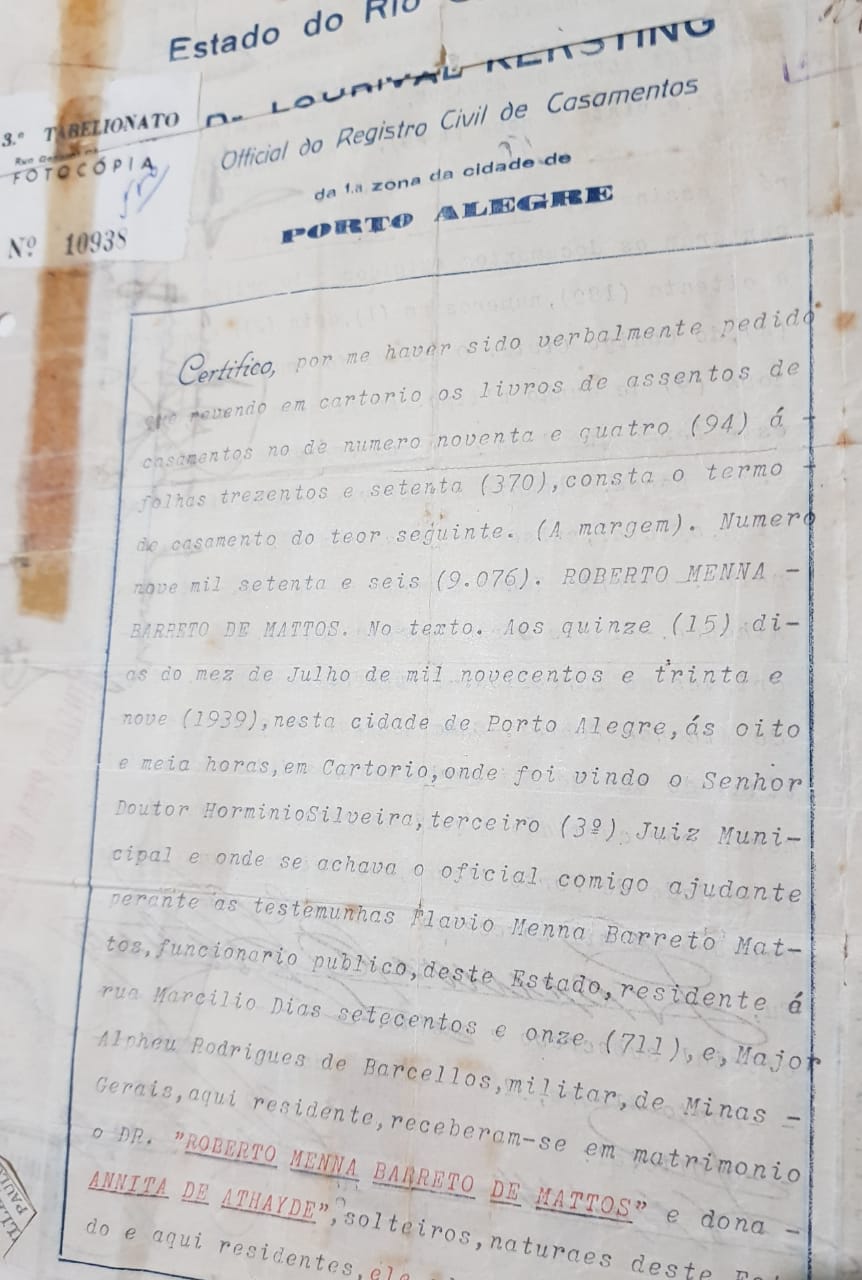 Estado do Rio
Dr. LOURIVAL KERSTING
Official do Registro Civil de Casamentos
da 1.a zona da cidade de
PORTO ALEGRE
3.º TABELIONATO
FOTOCÓPIA
Nº 10938
Certifico, por me haver sido verbalmente pedido
que revendo em cartorio os livros de assentos de
casamentos no de numero noventa e quatro (94) á +
folhas trezentos e setenta (370),consta o termo +
de casamento do teor seguinte. (A margem). Numero
nove mil setenta e seis (9.076). ROBERTO MENNA -
BARRETO DE MATTOS. No texto. Aos quinze (15) di-
as do mez de Julho de mil novecentos e trinta e
nove (1939),nesta cidade de Porto Alegre,ás oito
e meia horas,em Cartorio,onde foi vindo o Senhor
Doutor HorminioSilveira,terceiro (3º) Juiz Muni-
cipal e onde se achava o oficial comigo ajudante
perante as testemunhas Flavio Menna Barreto Mat-
tos,funcionario publico,deste Estado,residente á
rua Marcilio Dias setecentos e onze (711),e,Major
Alpheu Rodrigues de Barcellos,militar,de Minas -
Gerais,aqui residente,receberam-se em matrimonio
o DR. "ROBERTO MENNA BARRETO DE MATTOS" e dona -
ANNITA DE ATHAYDE",solteiros,naturaes deste
do e aqui residentes,ele